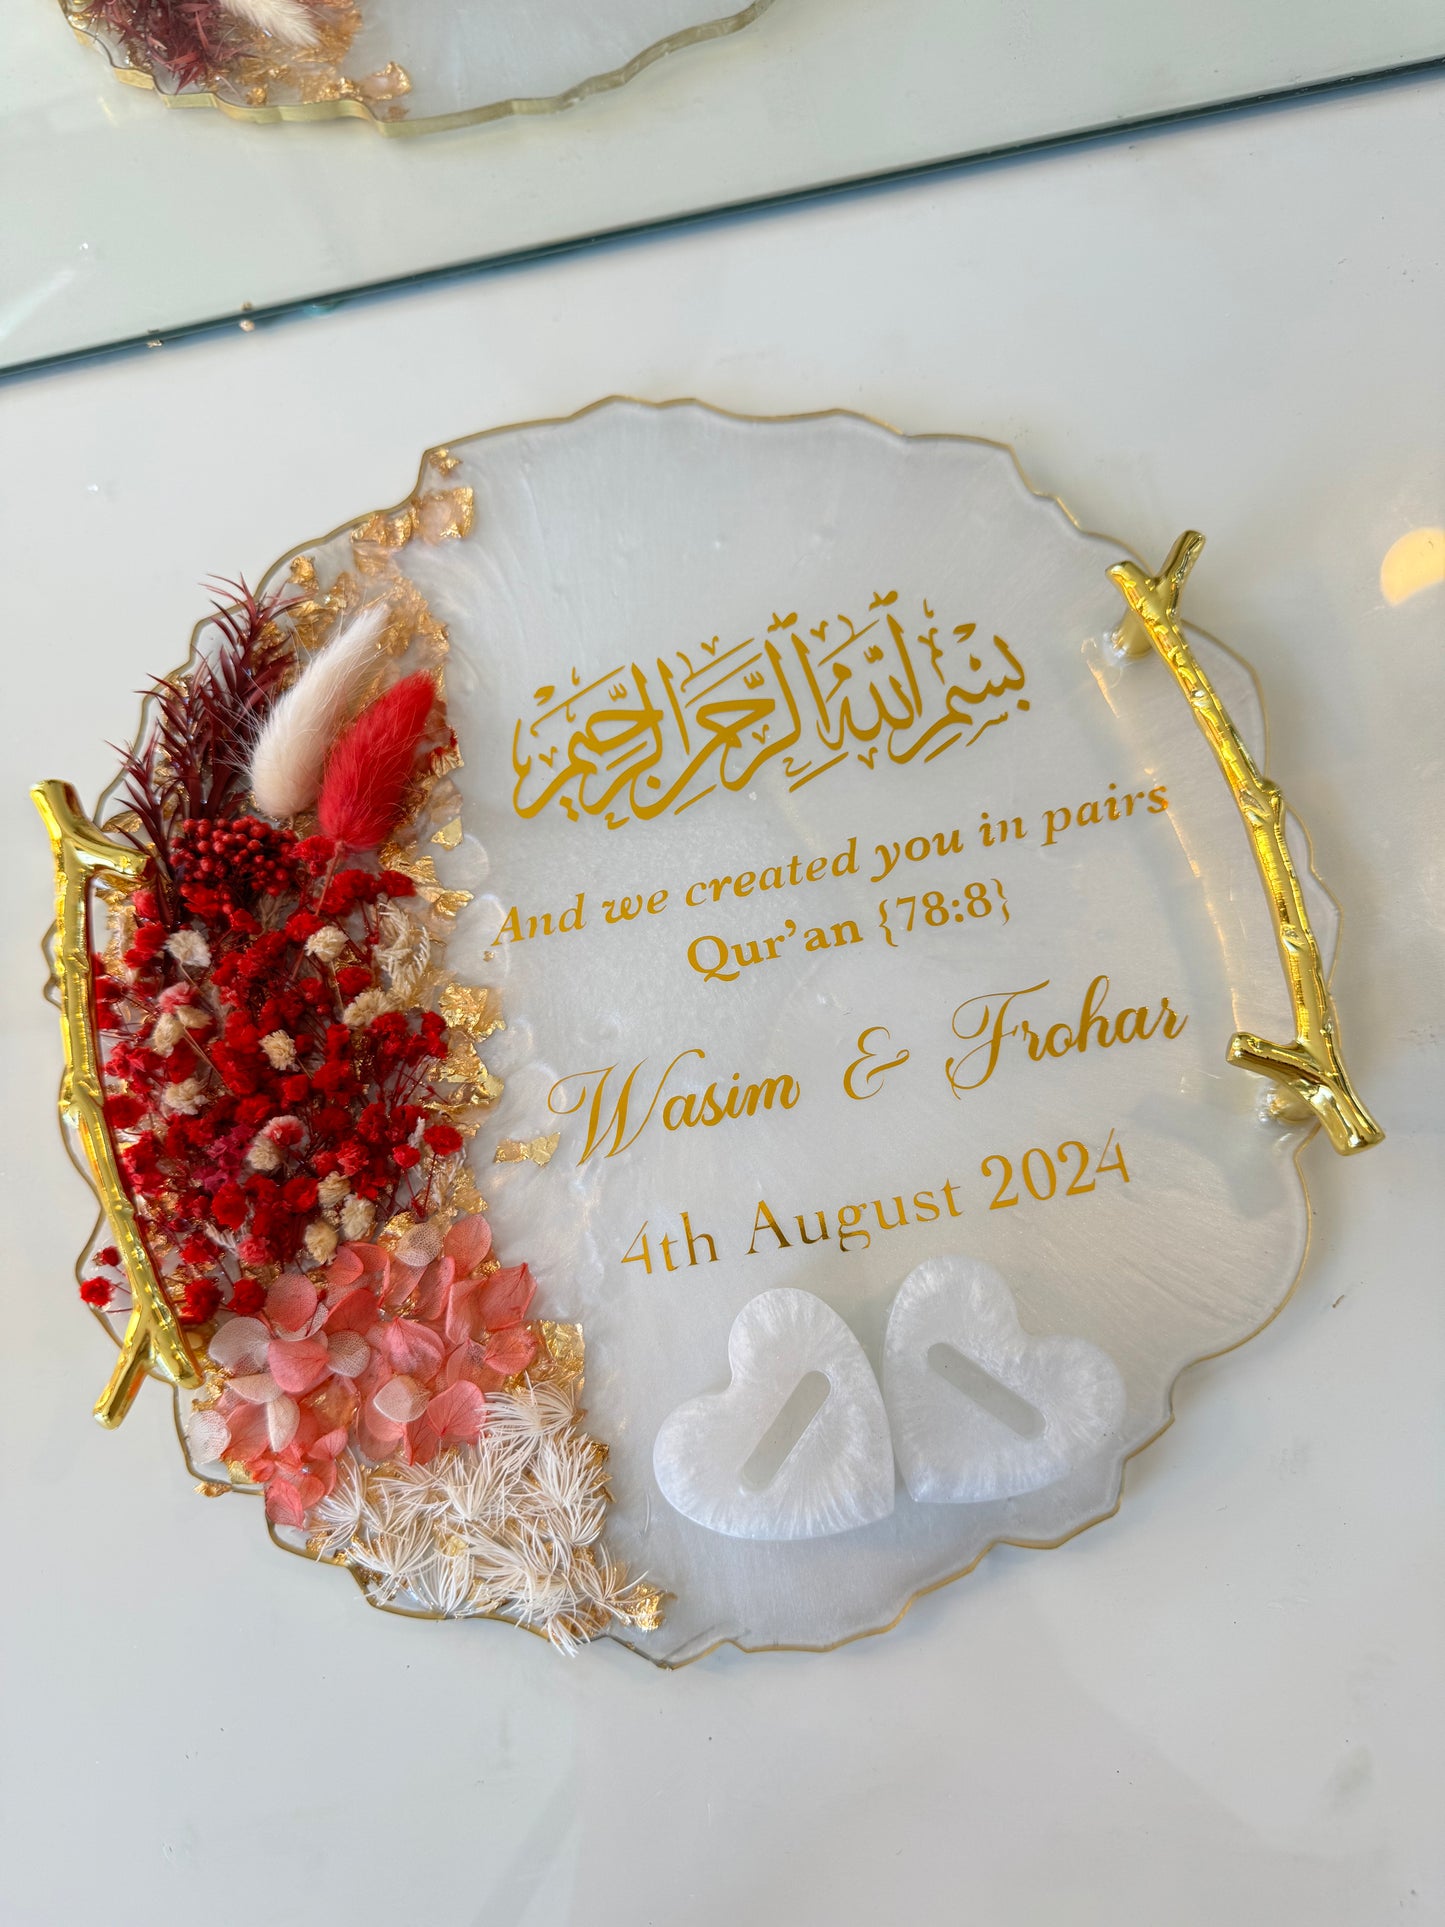 بِسْمِ اللَّهِ الرَّحْمَٰنِ الرَّحِيمِ
And we created you in pairs
Qur'an {78:8}
Wasim & Frohar
4th August 2024